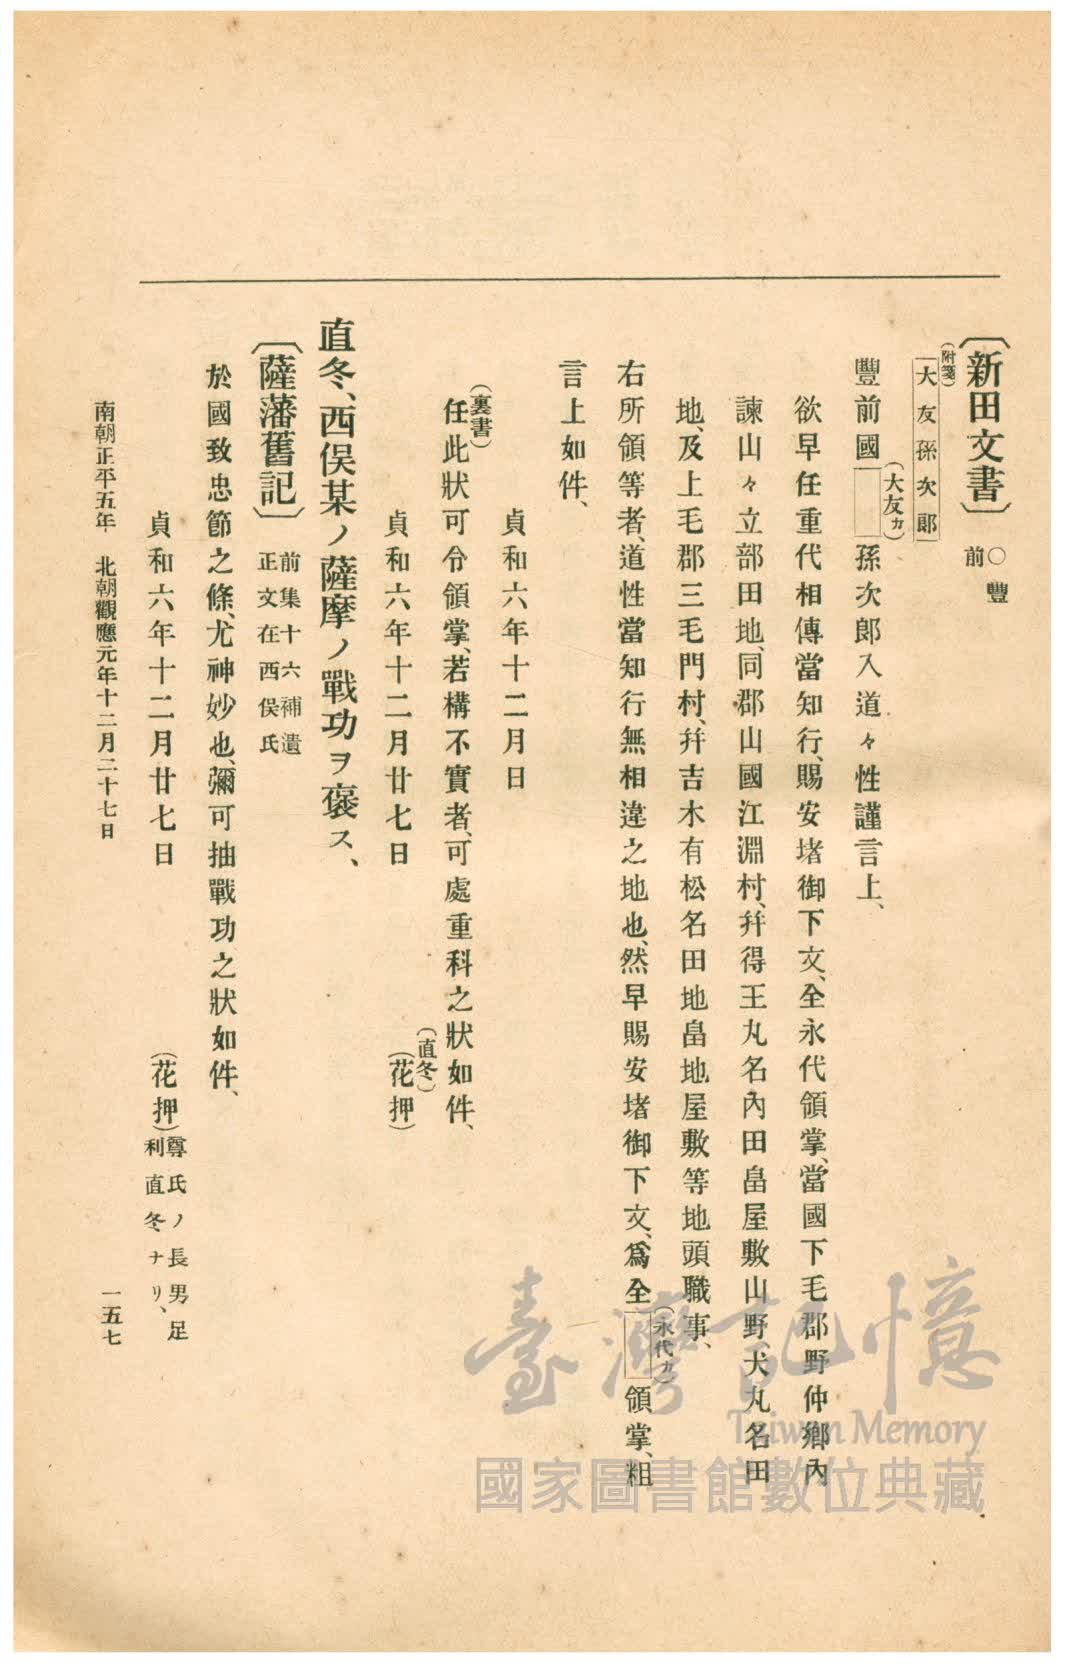 〔新田文書〕○豐前
(附箋)
大友孫次郎
(大友カ)
豐前國□孫次郎入道々性謹言上、
欲早任重代相傳當知行、賜安堵御下文、全永代領掌、當國下毛郡野仲鄕內
諫山々、立部田地、同郡山國江淵村、幷得王丸名內田畠屋敷山野、犬丸名田
地、及上毛郡三毛門村、幷吉木有松名田地畠地屋敷等地頭職事、
右所領等者、道性當知行無相違之地也、然早賜安堵御下文、爲全□領掌、粗
(永代カ)
言上如件、
貞和六年十二月日
(裏書)
任此狀可令領掌、若構不實者、可處重科之狀如件、
(直冬)
貞和六年十二月廿七日　(花押)
直冬、西俣某ノ薩摩ノ戰功ヲ褒ス、
〔薩藩舊記〕前集十六補遺
正文在西俣氏
於國致忠節之條、尤神妙也、彌可抽戰功之狀如件、
貞和六年十二月廿七日　(花押)尊氏ノ長男足
利直冬ナリ、
南朝正平五年　北朝觀應元年十二月二十七日　一五七
臺灣記憶
Taiwan Memory
國家圖書館數位典藏